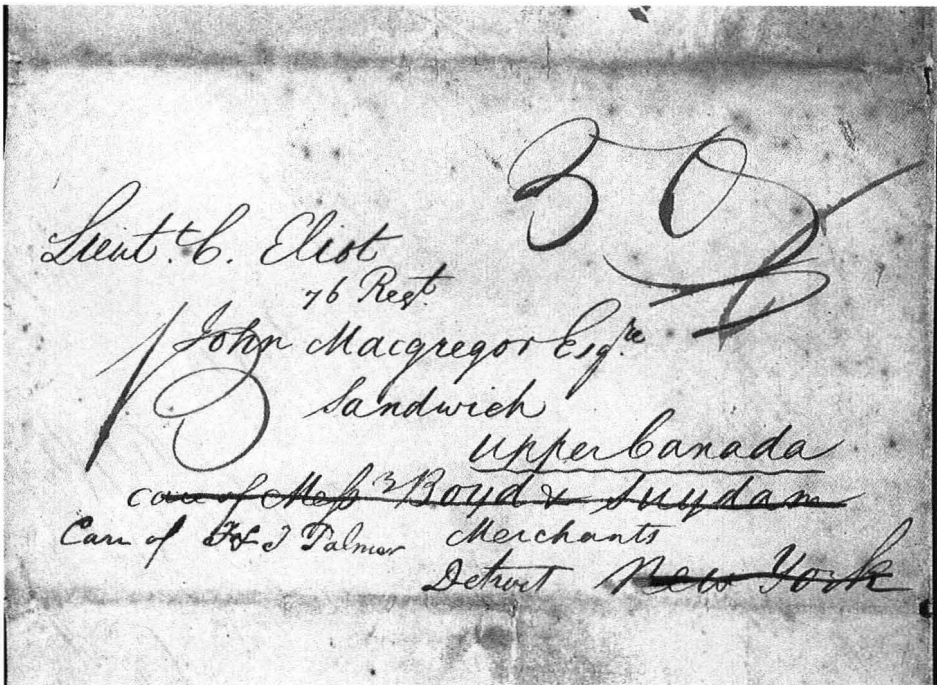 30
Lieut.t C. Eliot
76 Regt.
John Macgregor Esq.re
Sandwich
Upper Canada
care of Mess.rs Boyd & Suydam
Care of F & T Palmer Merchants
Detroit New York